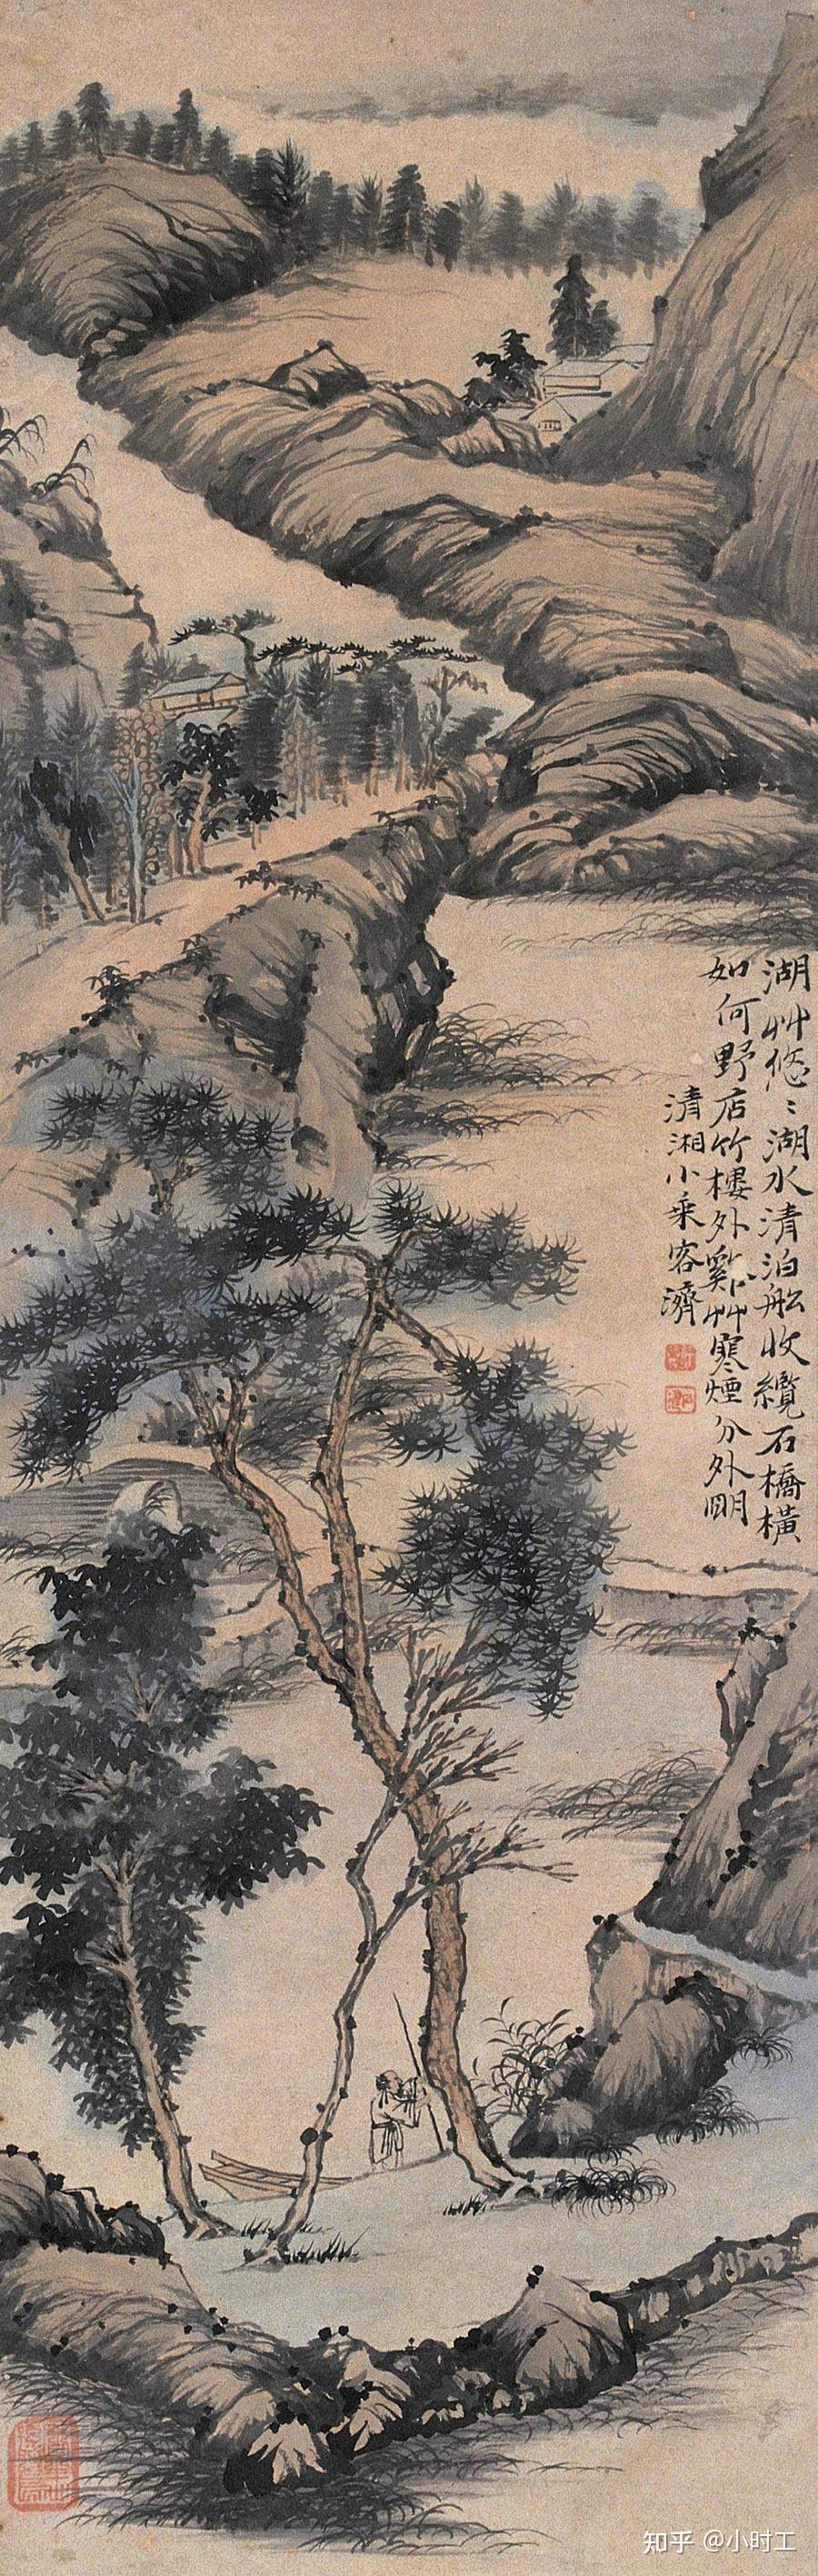 湖艸悠〻湖水清泊船收纜石橋橫
如何野店竹樓外雞艸寒煙分外明
清湘小乘客濟
知乎 @小时工